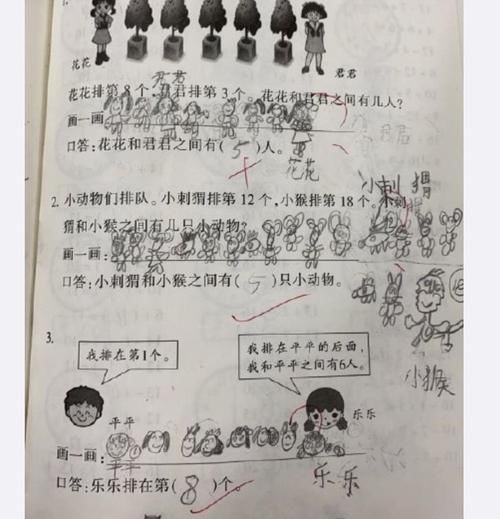 1.
花花
君君
君君
花花排第8个，君君排第3个。花花和君君之间有几人？
画一画
口答：花花和君君之间有（5）人。
花花
小刺猬
2. 小动物们排队。小刺猬排第12个，小猴排第18个。小刺
猬和小猴之间有几只小动物？
画一画：
口答：小刺猬和小猴之间有（5）只小动物。
小猴
3.
我排在第1个。
我排在平平的后面，
我和平平之间有6人。
平平
乐乐
画一画：
平平
口答：乐乐排在第（8）个。
乐乐